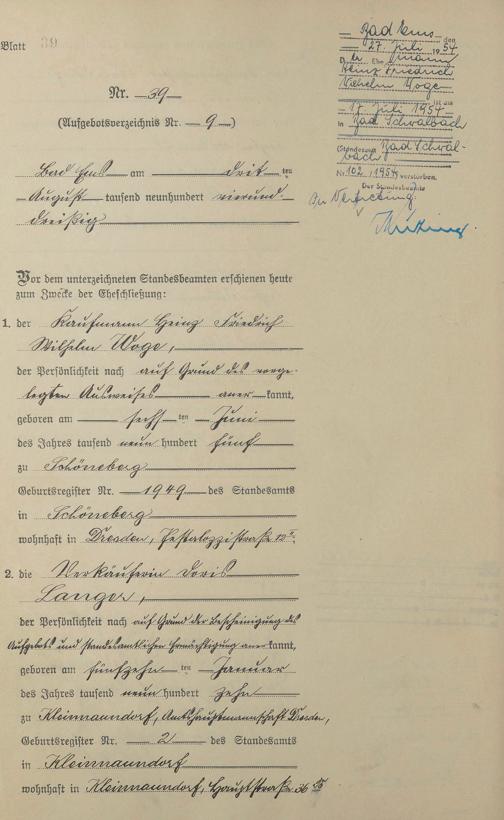 Blatt 39
Bad Ems, den
27. Juli 1954
Der Ehemann
Heinz Friedrich
Wilhelm Woge
ist am
17. Juli 1954
in Bad Schwalbach
(Standesamt Bad Schwal-
bach
Nr. 102/1954) verstorben.
Der Standesbeamte
In Vertretung:
Nr. 39
(Aufgebotsverzeichnis Nr. 9)
Bad Ems am drit ten
August tausend neunhundert vierund-
dreißig
Vor dem unterzeichneten Standesbeamten erschienen heute
zum Zwecke der Eheschließung:
1. der Kaufmann Heinz Friedrich
Wilhelm Woge,
der Persönlichkeit nach auf Grund des vorge-
legten Ausweises aner kannt,
geboren am sechs ten Juni
des Jahres tausend neun hundert fünf
zu Schöneberg
Geburtsregister Nr. 1949 des Standesamts
in Schöneberg
wohnhaft in Dresden, Pestalozzistraße 12
2. die Verkäuferin Doris
Langer,
der Persönlichkeit nach auf Grund der Bescheinigung des
Aufgebots und standesamtlichen Ermächtigung aner kannt,
geboren am fünfzehn ten Januar
des Jahres tausend neun hundert zehn
zu Kleinnaundorf, Amtshauptmannschaft Dresden,
Geburtsregister Nr. 2 des Standesamts
in Kleinnaundorf
wohnhaft in Kleinnaundorf, Hauptstraße 36